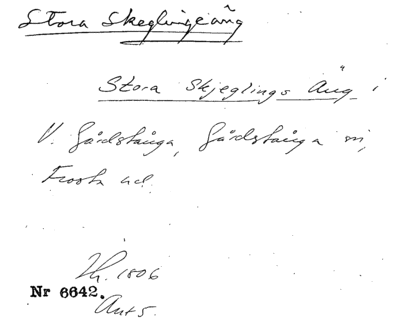 Stora Skeglingeäng
Stora Skjeglings Äng i
V. Gårdstånga, Gårdstånga sn,
Frosta hd.
1806
Nr 6642.
Ant 5.